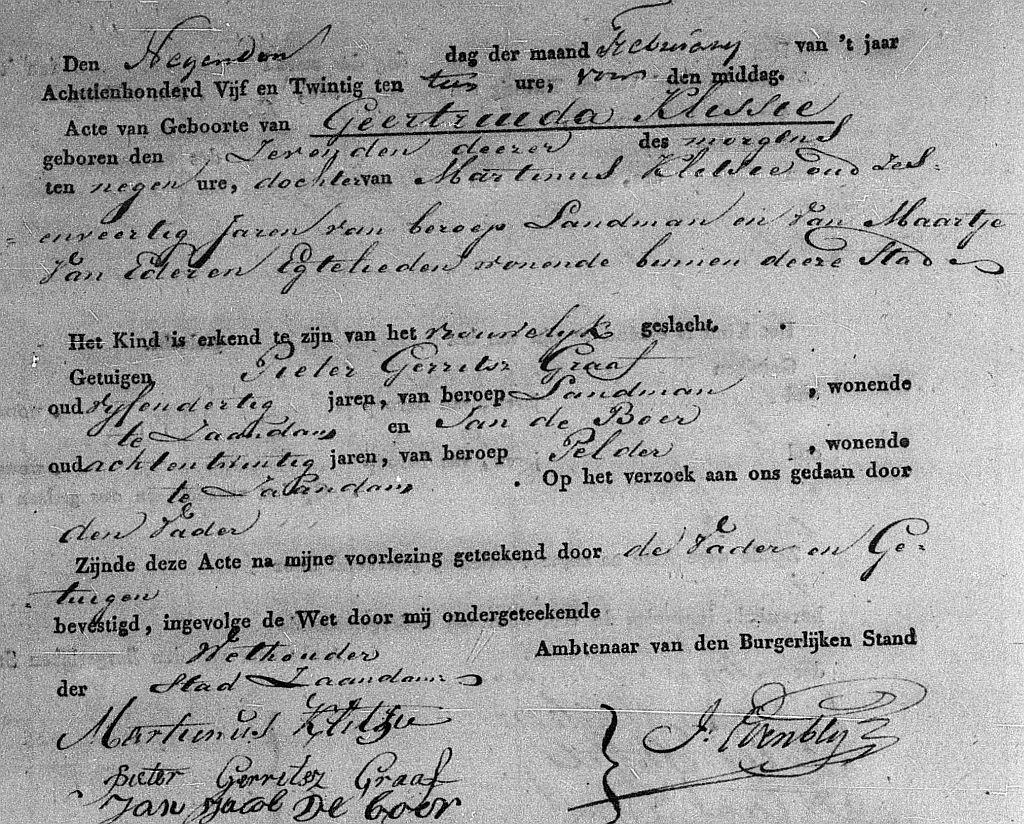 Den Negenden dag der maand February van 't jaar
Achttienhonderd Vijf en Twintig ten tien ure, voor den middag.
Acte van Geboorte van Geertruida Klessee
geboren den Zevenden deezer des morgens
ten negen ure, dochter van Martinus Kletsee oud zes-
= enveertig Jaren van beroep Landman en van Maartje
Van Ederen Egtelieden wonende binnen deeze Stad
Het Kind is erkend te zijn van het vrouwelyk geslacht.
Getuigen Pieter Gerritsz Graaf
oud vyfendertig jaren, van beroep Landman, wonende
te Zaandam en Jan de Boer
oud achtentwintig jaren, van beroep Pelder, wonende
te Zaandam. Op het verzoek aan ons gedaan door
den Vader
Zijnde deze Acte na mijne voorlezing geteekend door de Vader en Ge-
tuigen
bevestigd, ingevolge de Wet door mij ondergeteekende
Wethouder Ambtenaar van den Burgerlijken Stand
der Stad Zaandam
Martinus Kletsee
Pieter Gerritsz Graaf
Jan Jacob De boer